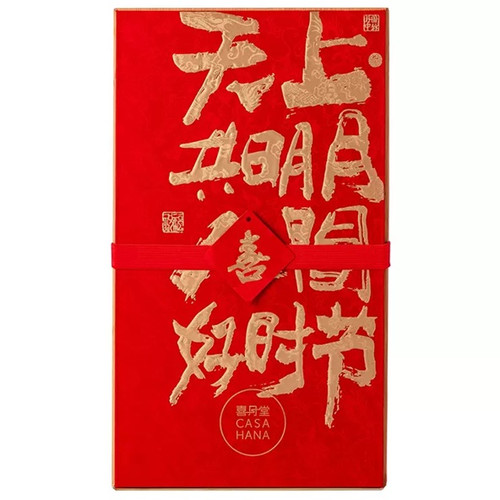 天上
共明月
人間
好时节
喜
喜月堂
CASA
HANA